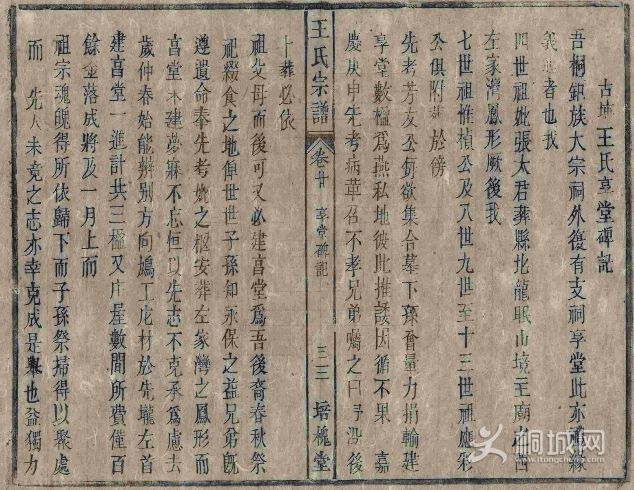 古塘王氏享堂碑記
吾桐鉅族大宗祠外復有支祠享堂此亦禮緣
義起者也我
四世祖妣張太君葬縣北龍眠山境主廟之西
左家灣鳳形厥後我
七世祖惟楨公及八世九世至十三世祖應彩
公俱附葬於傍
先考芳友公每欲集合墓下孫會量力捐輸建
享堂數楹爲燕私地彼此推諉因循不果 嘉
慶庚申先考病革召不孝兄弟囑之曰予歿後
王氏宗譜 卷廿 享堂碑記 三三 培槐堂
卜葬必依
祖父母而後可又必建亯堂爲吾後裔春秋祭
祀綴食之地俾世世子孫知永保之益兄弟旣
遵遺命奉先考妣之柩安葬左家灣之鳳形而
亯堂未建夢寐不忘恒以先志不克承爲慮去
歲仲春始能辦别方向鳩工庀材於先壠左首
建亯堂一進計共三楹又厈屋數間所費僅百
餘金落成將及一月上而
祖宗魂魄得所依歸下而子孫祭掃得以聚處
而 先人未竟之志亦幸克成是舉也益獨力
桐城网
www.itongcheng.com